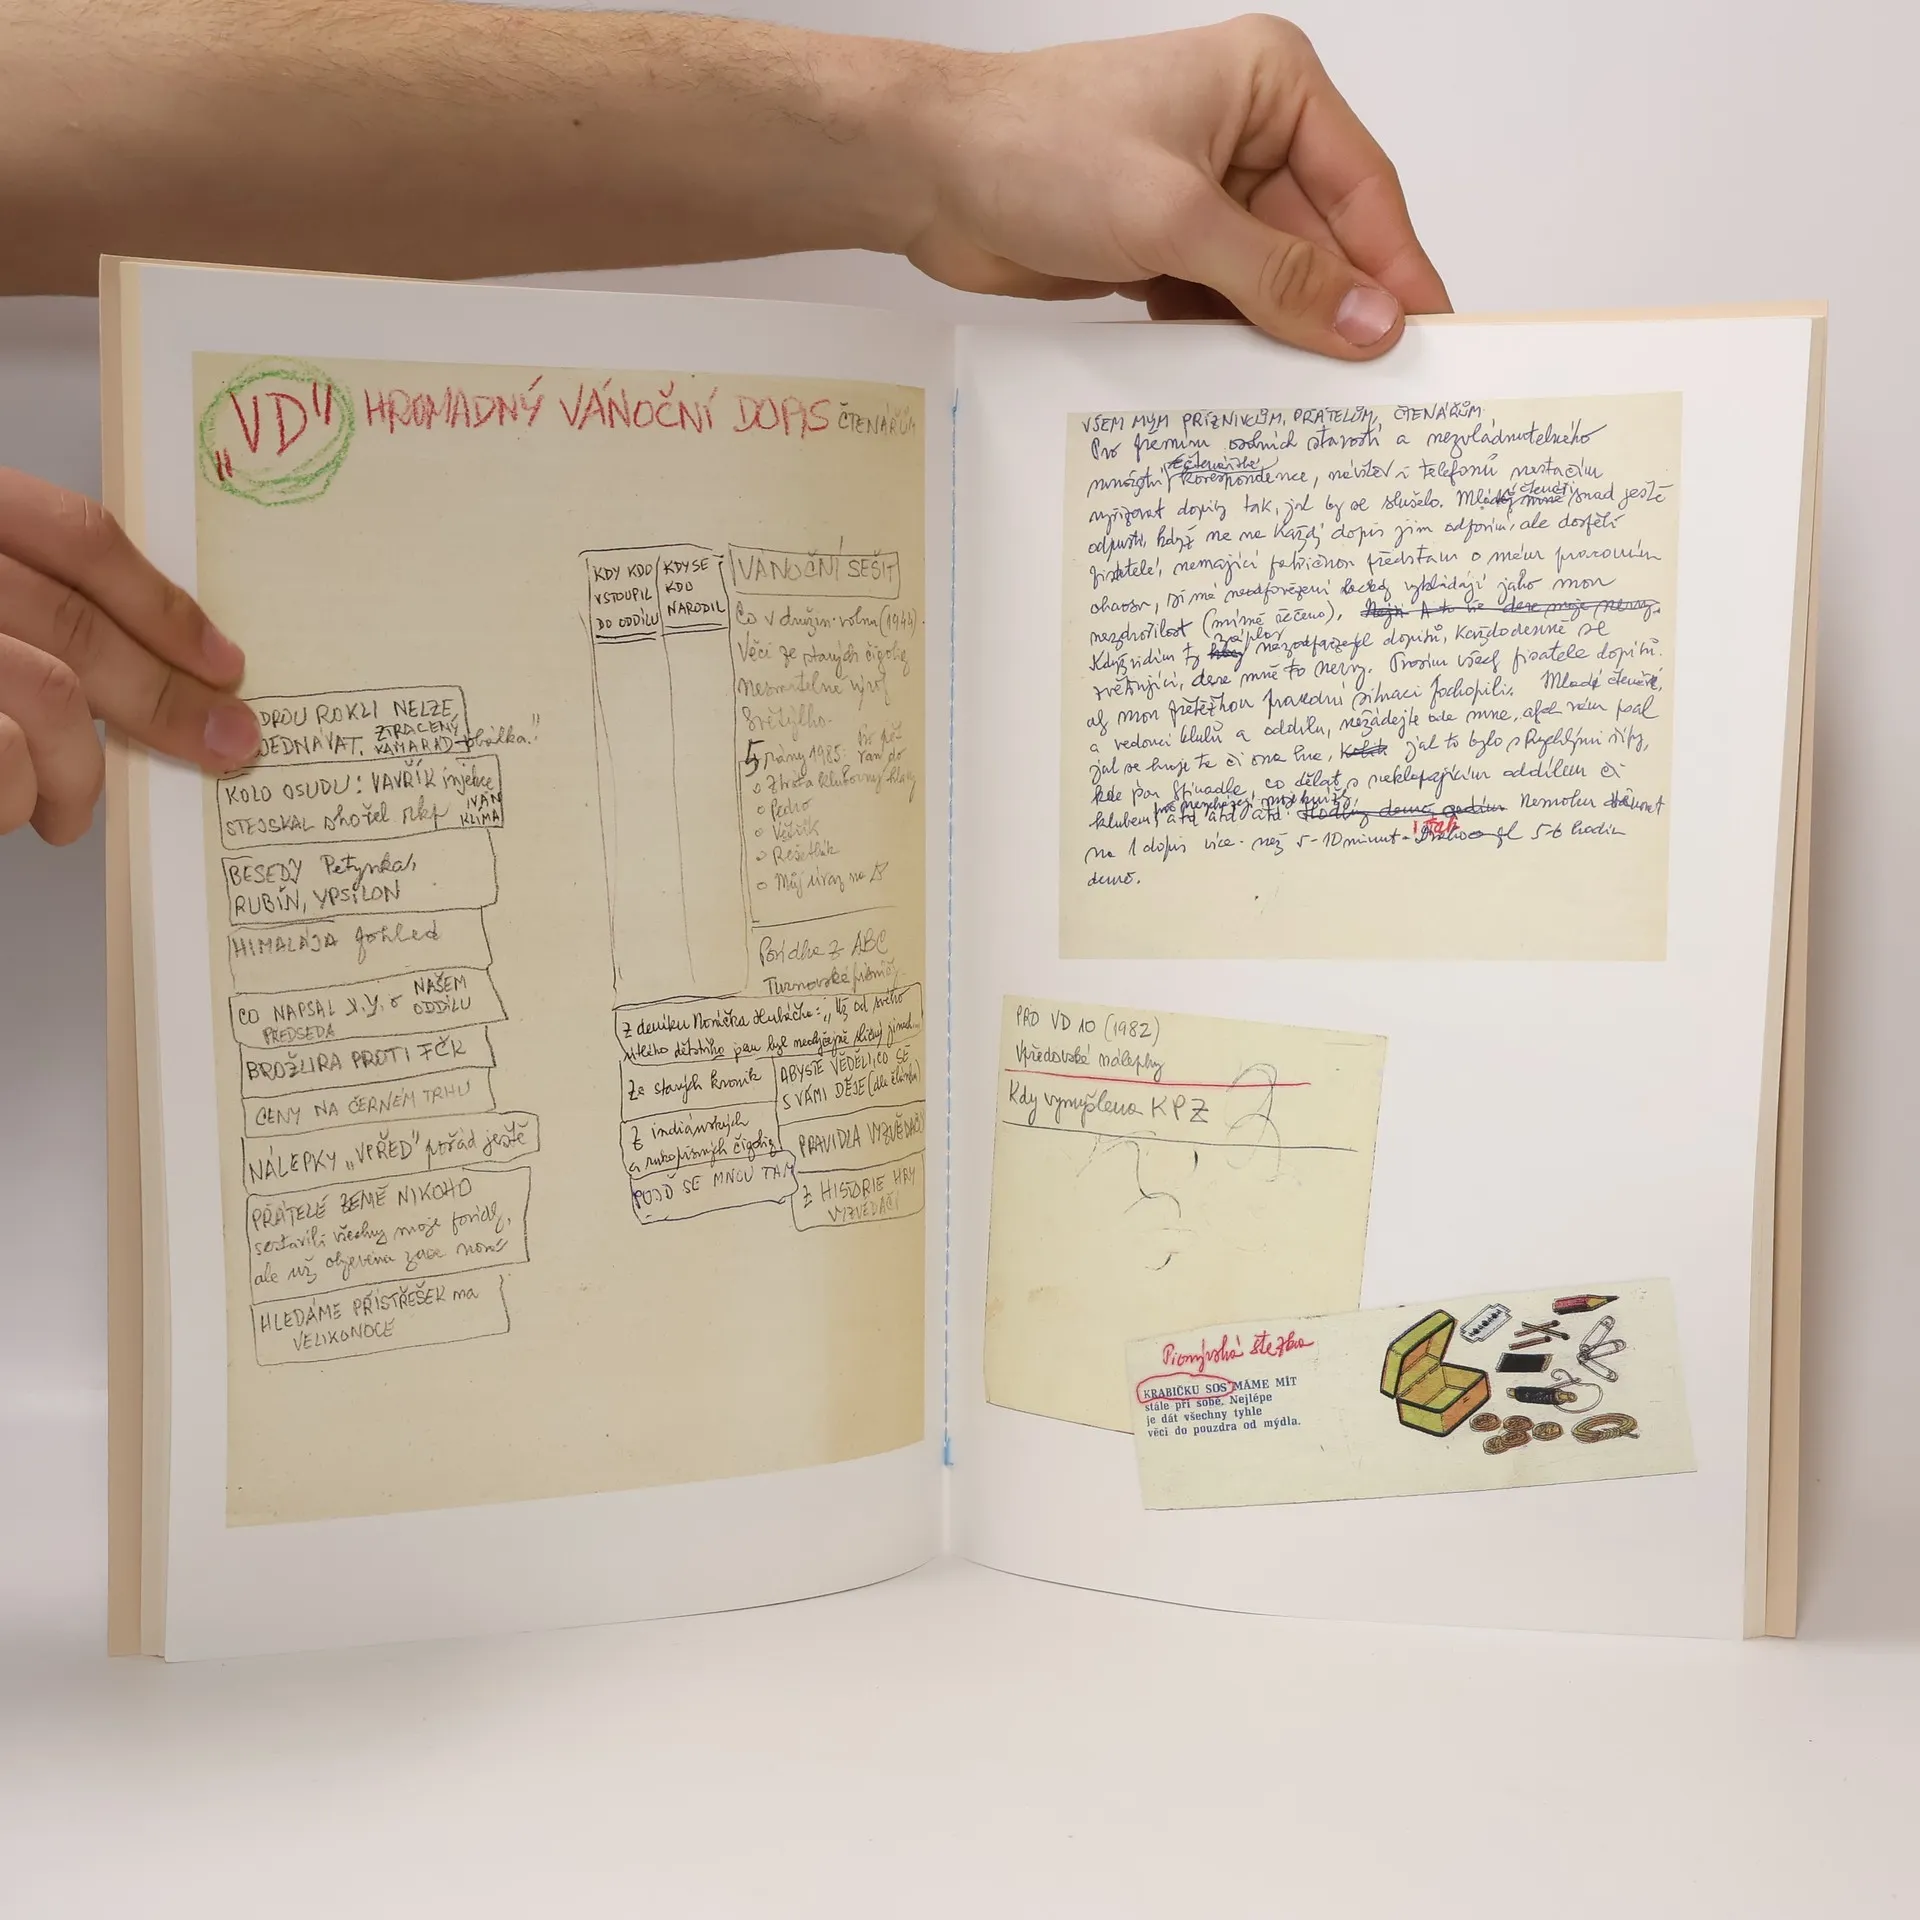 „VD" HROMADNÝ VÁNOČNÍ DOPIS ČTENÁŘŮM
DROU ROKLI NELZE
JEDNÁVAT. ZTRACENÝ
KAMARÁD
KOLO OSUDU: VAVŘÍK injekce
STEJSKAL shořel rkp IVAN
KLÍMA
BESEDY Petynka,
RUBÍN, YPSILON
HIMALÁJA pohled
CO NAPSAL X.Y. o NAŠEM
PŘEDSEDA ODDÍLU
BROŽURA PROTI FČK
CENY NA ČERNÉM TRHU
NÁLEPKY „VPŘED" pořád ještě
PŘÁTELÉ ZEMĚ NIKOHO
sestavili všechny moje povídky,
ale už objevena zase nová
HLEDÁME PŘÍSTŘEŠEK na
VELIKONOCE
KDY KDO
VSTOUPIL
DO ODDÍLU
KDY SE
KDO
NARODIL
VÁNOČNÍ SEŠIT
Co v družin. volnu (1944)
Věci ze starých čigolig
Nesmrtelné
5 rány 1985:
Ztráta klubovny
Pedro
Vězník
Rešetlák
Můj úraz na
Povídka z ABC
Turnovské
Z deníku Noráčka Hubáčka: „Už od svého
útlého dětství jsem byl neobyčejně
Ze starých kronik
ABYSTE VĚDĚLI, CO SE
S VÁMI DĚJE (dle článku)
Z indiánských
a rukopisných čigolig
PRAVIDLA VYZVĚDAČŮ
POJĎ SE MNOU TAM
Z HISTORIE HRY
VYZVĚDAČI
VŠEM MÝM PŘÍZNIVCŮM, PŘÁTELŮM, ČTENÁŘŮM
Pro osobních starostí a nezvládnutelného
množství čtenářské korespondence, návštěv i telefonů nestačím
vyřizovat dopisy tak, jak by se slušelo. čtenáři snad ještě
odpustí, když ne na každý dopis jim odpovím, ale dospělí
pisatelé, nemající představu o mém pracovním
chaosu, si mé neodpovězení vykládají jako mou
nezdvořilost (mírně řečeno).
Když vidím ty neodpověděných dopisů, každodenně se
zvětšující, dere mně to nervy. Prosím všech pisatelů dopisů
aby mou přetěžkou pracovní situaci pochopili. Mladí čtenáři,
a vedoucí klubů a oddílů, nežádejte ode mne, abych vám psal
jak se hraje ta či ona hra, jak to bylo s Rychlými šípy,
kde jsou Stínadla, co dělat s neklapajícím oddílem či
klubem, atd atd atd. Nemohu věnovat
na 1 dopis více než 5–10 minut. I tak 5–6 hodin
denně.
PRO VD 10 (1982)
Vpředovské nálepky
Kdy vymyšlena KPZ
Pionýrská stezka
KRABIČKU SOS MÁME MÍT
stále při sobě. Nejlépe
je dát všechny tyhle
věci do pouzdra od mýdla.